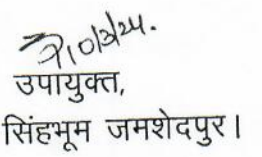 10/3/24.
उपायुक्त,
सिंहभूम जमशेदपुर।